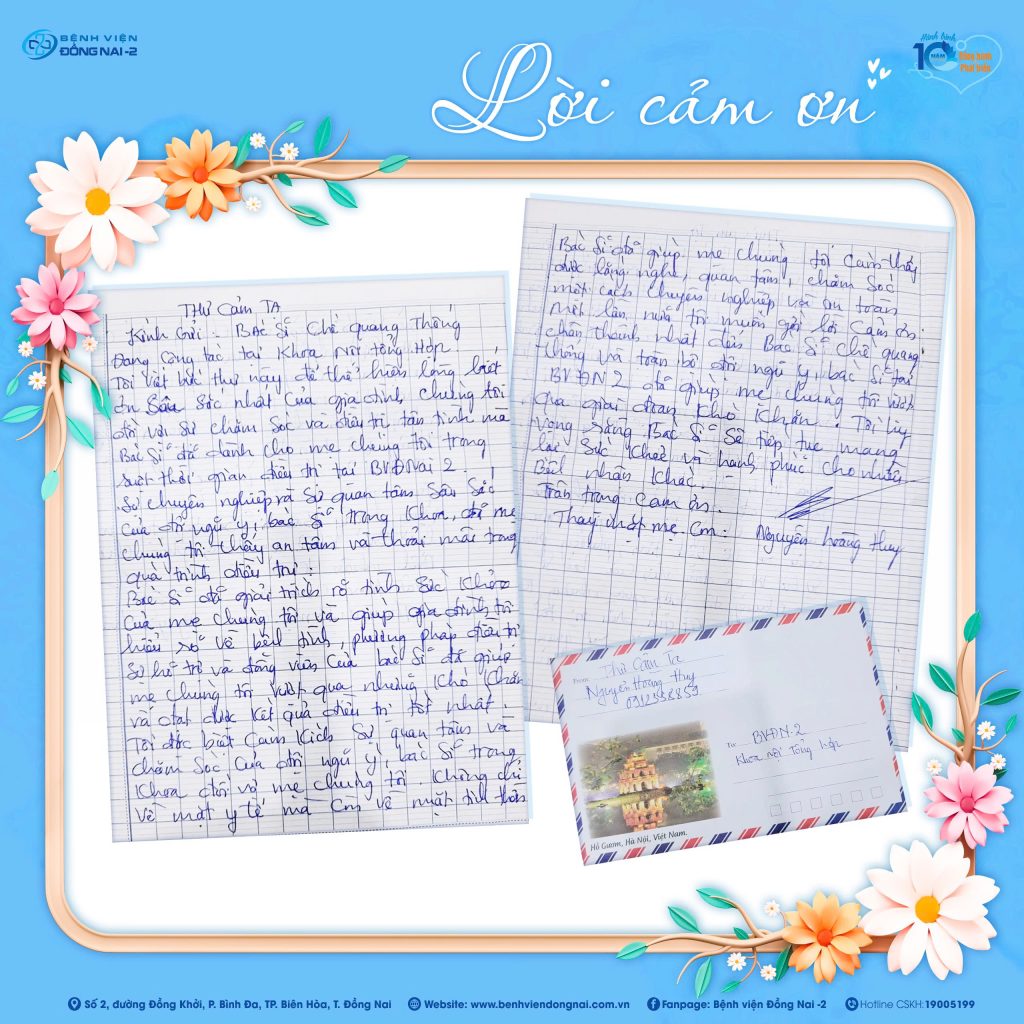 BỆNH VIỆN
ĐỒNG NAI -2
Hành trình
10 NĂM
Phát triển
Lời cảm ơn
THƯ CẢM TẠ
Kính Gửi: Bác Sĩ Chế Quang Thống
Đang công tác tại Khoa Nội tổng Hợp
Tôi viết bức thư này để thể hiện lòng biết
ơn Sâu Sắc nhất Của gia đình chúng tôi
đối với sự chăm Sóc và điều trị tận tình mà
Bác Sĩ đã dành cho mẹ chúng tôi trong
suốt thời gian điều trị tại BVĐNai 2.
Sự chuyên nghiệp và Sự quan tâm Sâu Sắc
Của đội ngũ y, bác Sĩ trong Khoa, đã mẹ
chúng tôi thấy an tâm và thoải mái trong
quá trình điều trị.
Bác Sĩ đã giải thích rõ tình Sức Khỏe
Của mẹ chúng tôi và giúp gia đình tôi
hiểu rõ về bệnh tình phương pháp điều trị
Sự hỗ trợ và động viên Của bác Sĩ đã giúp
mẹ chúng tôi vượt qua những Khó Khăn
và đạt được Kết quả điều trị tốt nhất.
Tôi đặc biệt Cảm Kích Sự quan tâm và
chăm Sóc Của đội ngũ y, bác Sĩ trong
Khoa đối với mẹ chúng tôi Không chỉ
Về mặt y tế mà Còn về mặt tinh thần
Bác Sĩ đã giúp mẹ chúng tôi Cảm thấy
được lắng nghe, quan tâm, chăm Sóc
một cách chuyên nghiệp và an toàn
Một lần nữa tôi muốn gửi lời Cảm ơn
chân thành nhất đến Bác Sĩ Chế quang
thống và toàn bộ đội ngũ y, bác Sĩ tại
BVĐN2 đã giúp mẹ chúng tôi vượt
qua giai đoạn Khó Khăn. Tôi hy
Vọng rằng Bác Sĩ Sẽ tiếp tục mang
lại Sức Khỏe và hạnh phúc cho nhiều
Bệnh nhân Khác.
Trân trọng cảm ơn.
Thay mặt mẹ Con: Nguyễn Hoàng Huy
From:
Thư Cảm Tạ
Nguyễn Hoàng Huy
To:
BVĐN-2
Khoa nội Tổng hợp
Hồ Gươm, Hà Nội, Việt Nam.
Số 2, đường Đồng Khởi, P. Bình Đa, TP. Biên Hòa, T. Đồng Nai
Website: www.benhviendongnai.com.vn
Fanpage: Bệnh viện Đồng Nai -2
Hotline CSKH: 19005199